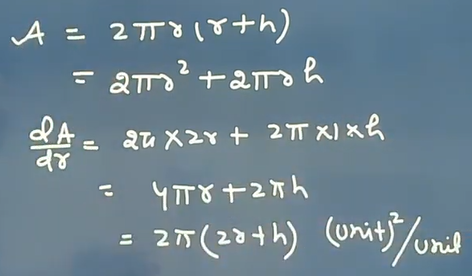 A = 2πr(r+h)
= 2πr² + 2πrh
dA/dr = 2π×2r + 2π×1×h
= 4πr + 2πh
= 2π(2r+h) (unit)²/unit